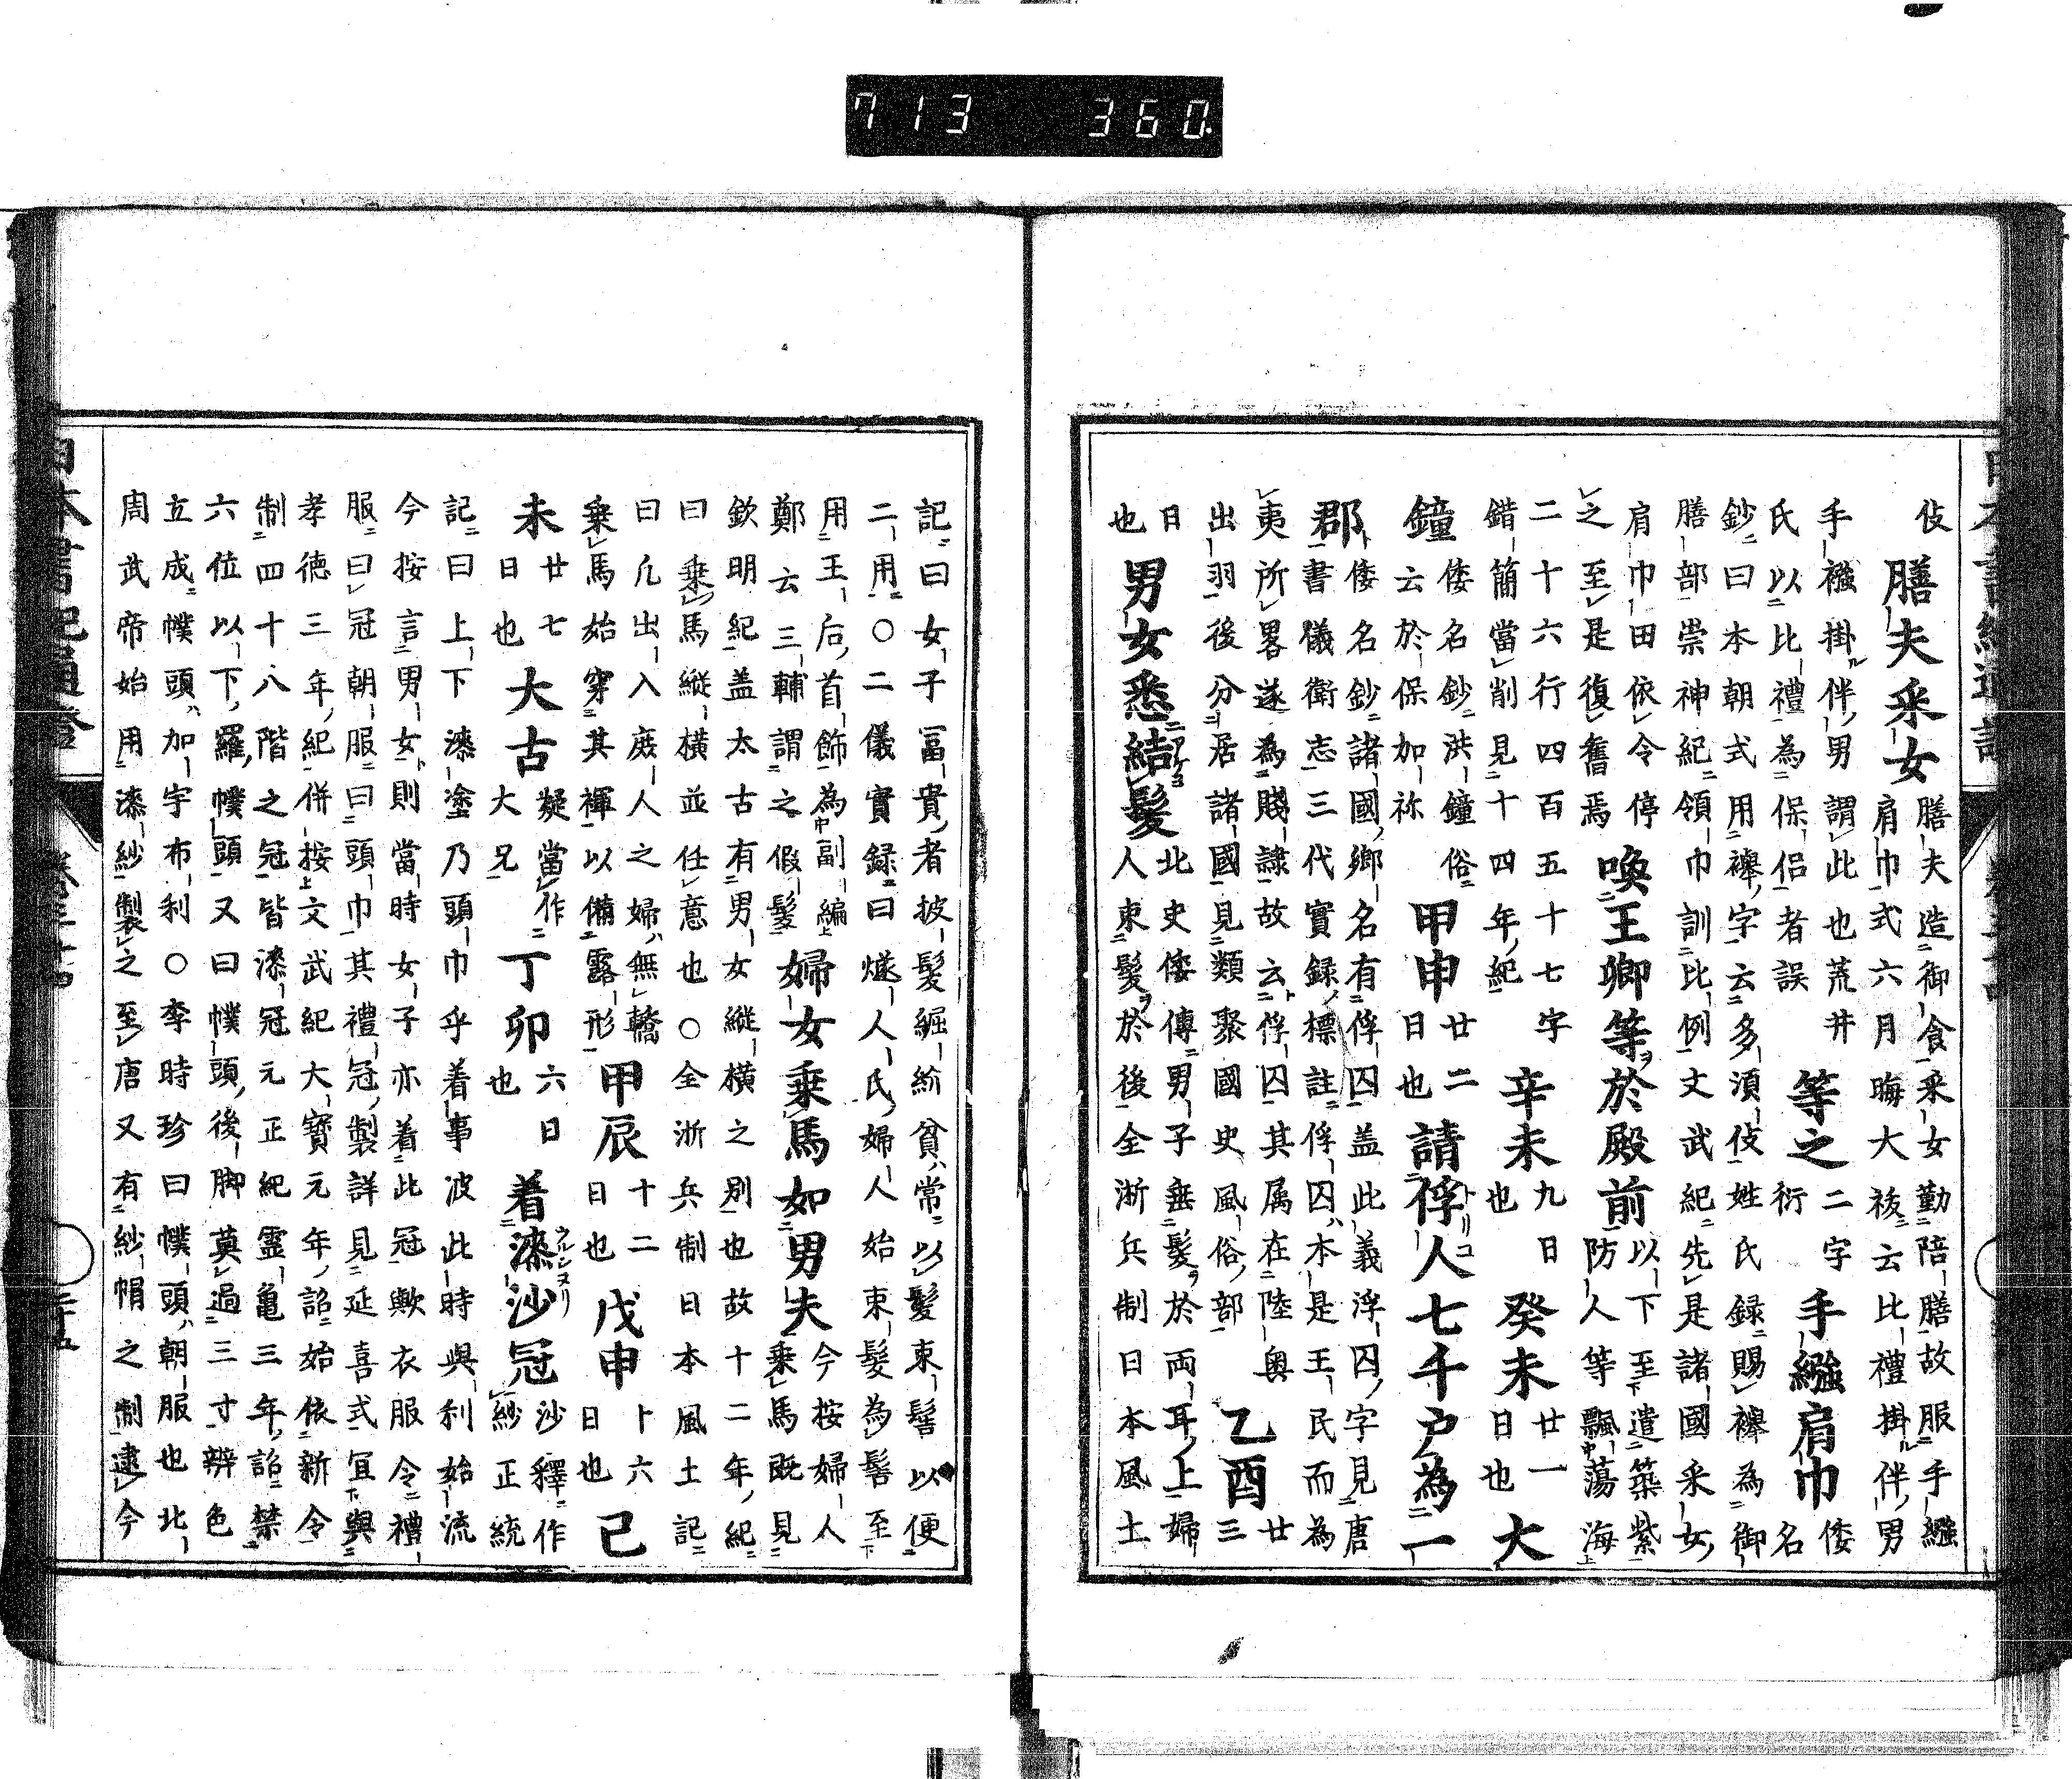 713 360
伎
膳夫采女
膳夫造御食采女勤陪膳故服手繦
肩巾式六月晦大祓云比禮掛伴男
手襁掛伴男謂此也荒井
氏以比禮為保侶者誤
等之
二字
衍
手繦肩巾
倭
名
鈔曰本朝式用襷字云多須伎姓氏録賜襷為御
膳部崇神紀領巾訓比例文武紀先是諸國采女
肩巾田依令停
之至是復舊焉
喚王卿等於殿前
以下至遣築紫
防人等飄蕩海
二十六行四百五十七字
錯簡當削見十四年紀
辛未
九日
也
癸未
廿一
日也
大
鐘
倭名鈔洪鐘俗
云於保加祢
甲申
廿二
日也
請俘人七千户為一
郡
倭名鈔諸國郷名有俘囚盖此義浮囚字見唐
書儀衛志三代實録標註俘囚本是王民而為
夷所畧遂為賤隷故云俘囚其属在陸奥
出羽後分居諸國見類聚國史風俗部
乙酉
廿
三
日
也
男女悉結髮
北史倭傳男子垂髮於両耳上婦
人束髮於後全浙兵制日本風土
記曰女子冨貴者披髮綰紒貧常以髮束髻以便
二用○二儀實録曰燧人氏婦人始束髮為髻至
用王后首飾為副編
鄭云三輔謂之假髮
婦女乗馬如男夫
今按婦人
乗馬既見
欽明紀盖太古有男女縦横之別也故十二年紀
曰乗馬縦横並任意也○全浙兵制日本風土記
曰凢出入庭人之婦無轎
乗馬始穿其褌以備露形
甲辰
十二
日也
戊申
十六
日也
己
未
廿七
日也
大古
疑當作
大兄
丁卯
六日
也
着漆沙冠
沙釋作
紗正統
記曰上下漆塗乃頭巾乎着事波此時與利始流
今按言男女則當時女子亦着此冠歟衣服令禮
服曰冠朝服曰頭巾其禮冠製詳見延喜式冝與
孝徳三年紀併按文武紀大寳元年詔始依新令
制四十八階之冠皆漆冠元正紀靈亀三年詔禁
六位以下羅幞頭又曰幞頭後脚莫過三寸辨色
立成幞頭加宇布利○李時珍曰幞頭朝服也北
周武帝始用漆紗製之至唐又有紗帽之制逮今